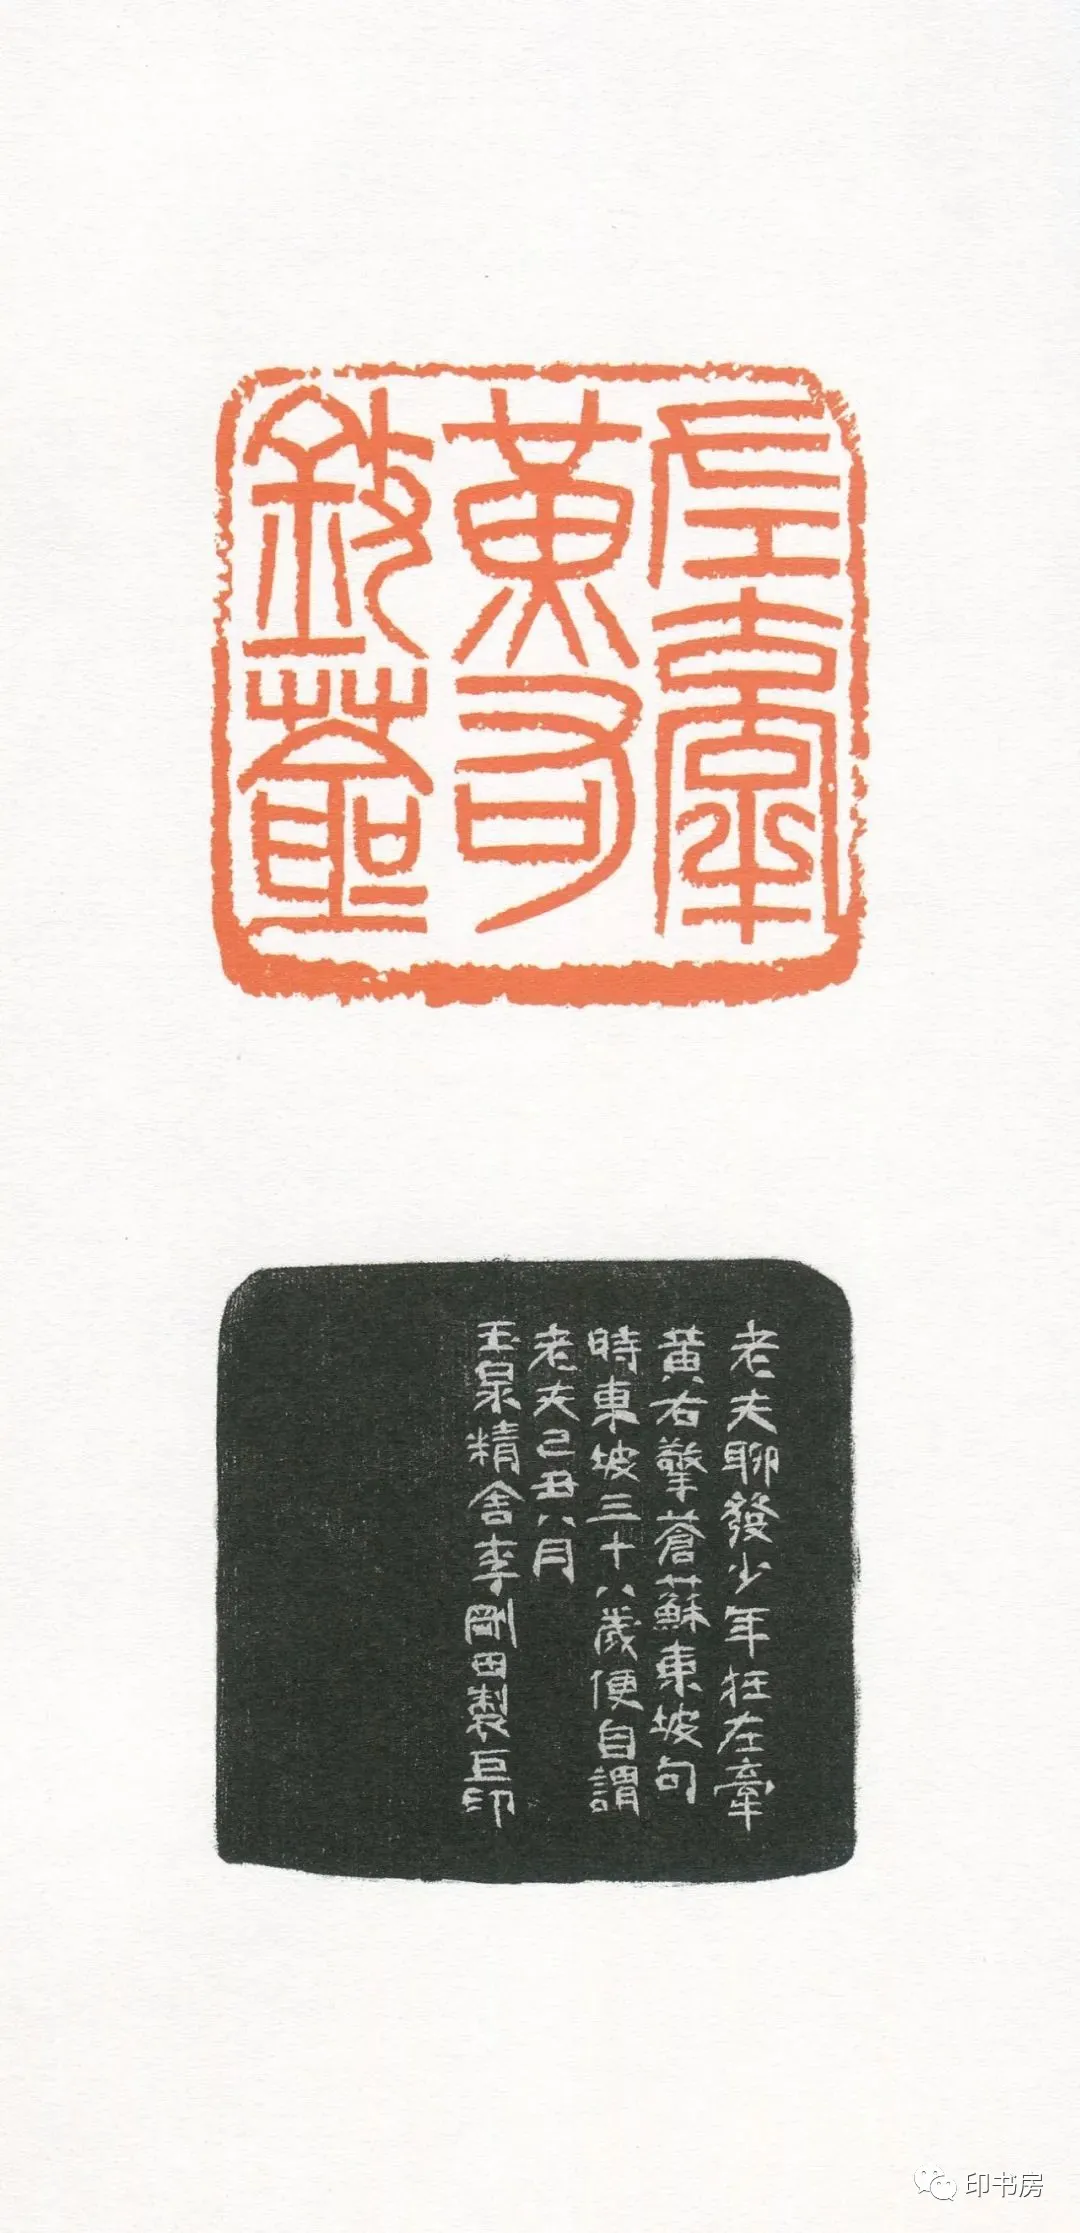 左牽
黃右
擎蒼
老夫聊發少年狂左牽
黃右擎蒼蘇東坡句
時東坡三十八歲便自謂
老夫己丑八月
玉泉精舍李剛田製巨印
印书房